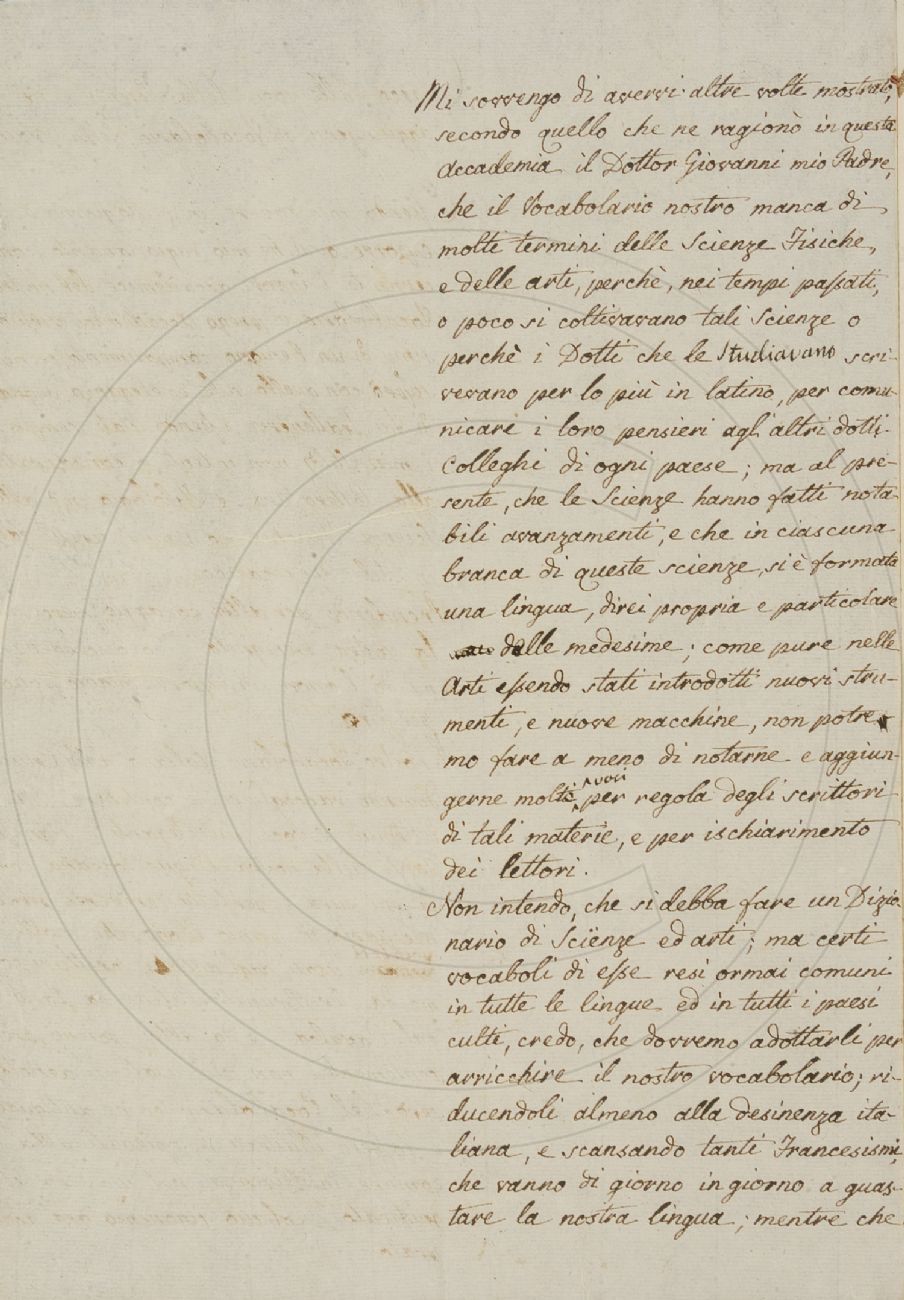 Mi sovvengo di avervi altre volte mostrato,
secondo quello che ne ragionò in questa
Accademia il Dottor Giovanni mio Padre,
che il Vocabolario nostro manca di
molti termini delle Scienze Fisiche,
e delle arti, perchè, nei tempi paſsati,
o poco si coltivavano tali Scienze o
perchè i Dotti che le Studiavano scri-
vevano per lo più in latino, per comu-
nicare i loro pensieri agl' altri dotti
Colleghi di ogni paese; ma al pre-
sente, che le Scienze hanno fatti nota
bili avanzamenti, e che in ciascuna
branca di queste scienze, si è formata
una lingua, direi propria e particolare
delle medesime; come pure nelle
Arti eſsendo stati introdotti nuovi stru-
menti, e nuove macchine, non potre
mo fare a meno di notarne e aggiun-
gerne molte voci per regola degli scrittori
di tali materie, e per ischiarimento
dei lettori.
Non intendo, che si debba fare un Dizio
nario di Scienze ed arti; ma certi
vocaboli di eſse resi ormai comuni
in tutte le lingue ed in tutti i paesi
culti, credo, che dovremo adottarli per
arricchire il nostro vocabolario; ri-
ducendoli almeno alla desinenza ita-
liana, e scansando tanti Francesismi,
che vanno di giorno in giorno a guas-
tare la nostra lingua; mentre che